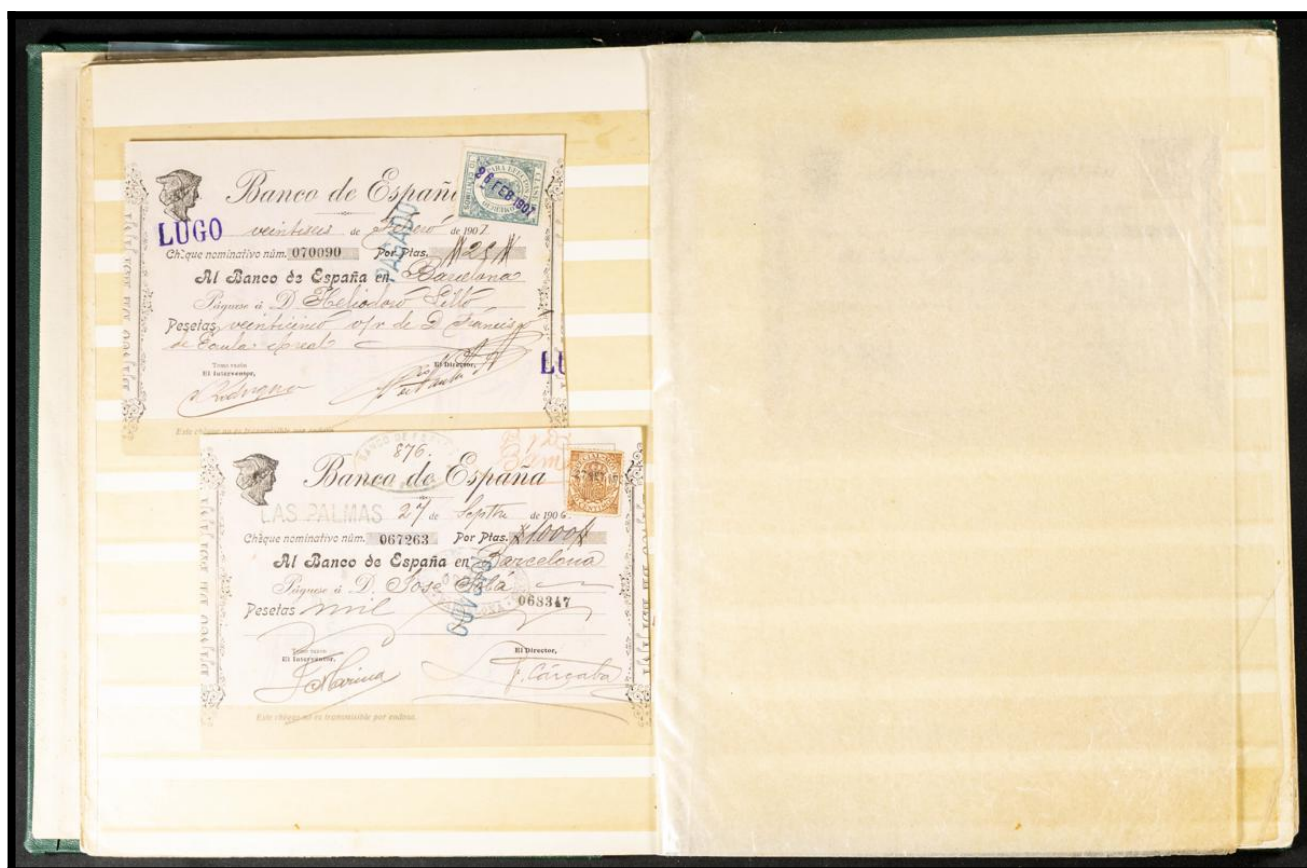 Banco de España
26 FEB 1907
LUGO
veintiseis de Febrero de 1907
Chèque nominativo núm. 070090 Por Ptas. 25
PAGADO
Al Banco de España en Barcelona
Páguese á D. Heliodoro
Pesetas veinticinco o/r de D. Francisco
de
Tomé razón
El Interventor,
El Director,
LU
Este chèque no es transmisible por endoso.
BANCO DE ESPAÑA
876.
Banco de España
LAS PALMAS 27 de Septbre de 1906.
Chèque nominativo núm. 067263 Por Ptas. 1.000
Al Banco de España en Barcelona
Páguese á D. José
Pesetas mil
068347
PAGADO
Tomé razón
El Interventor,
El Director,
J Marina
F. Cárcaba
Este chèque no es transmisible por endoso.